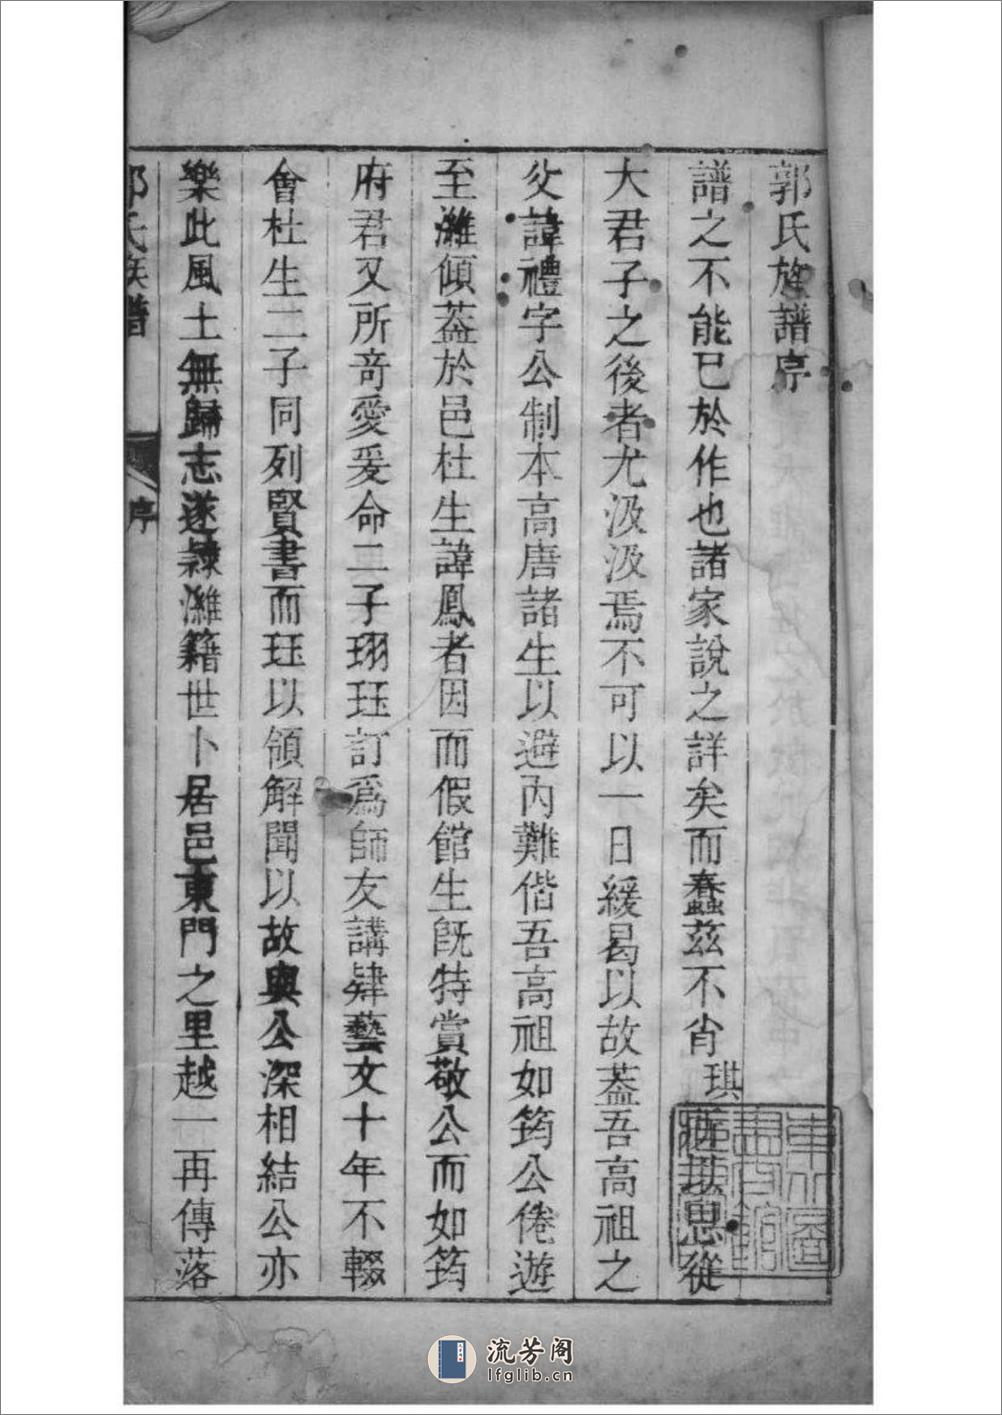 郭氏族譜序
譜之不能已於作也諸家說之詳矣而蠢茲不肖琪思從
大君子之後者尤汲汲焉不可以一日緩曷以故葢吾高祖之
父諱禮字公制本高唐諸生以避內難偕吾高祖如筠公倦遊
至濰傾葢於邑杜生諱鳳者因而假館生旣特賞敬公而如筠
府君又所竒愛爰命二子珝珏訂爲師友講肄藝文十年不輟
會杜生二子同列賢書而珏以領解聞以故與公深相結公亦
樂此風土無歸志遂隸濰籍世卜居邑東門之里越一再傳落
郭氏族譜
序
流芳阁
lfglib.cn